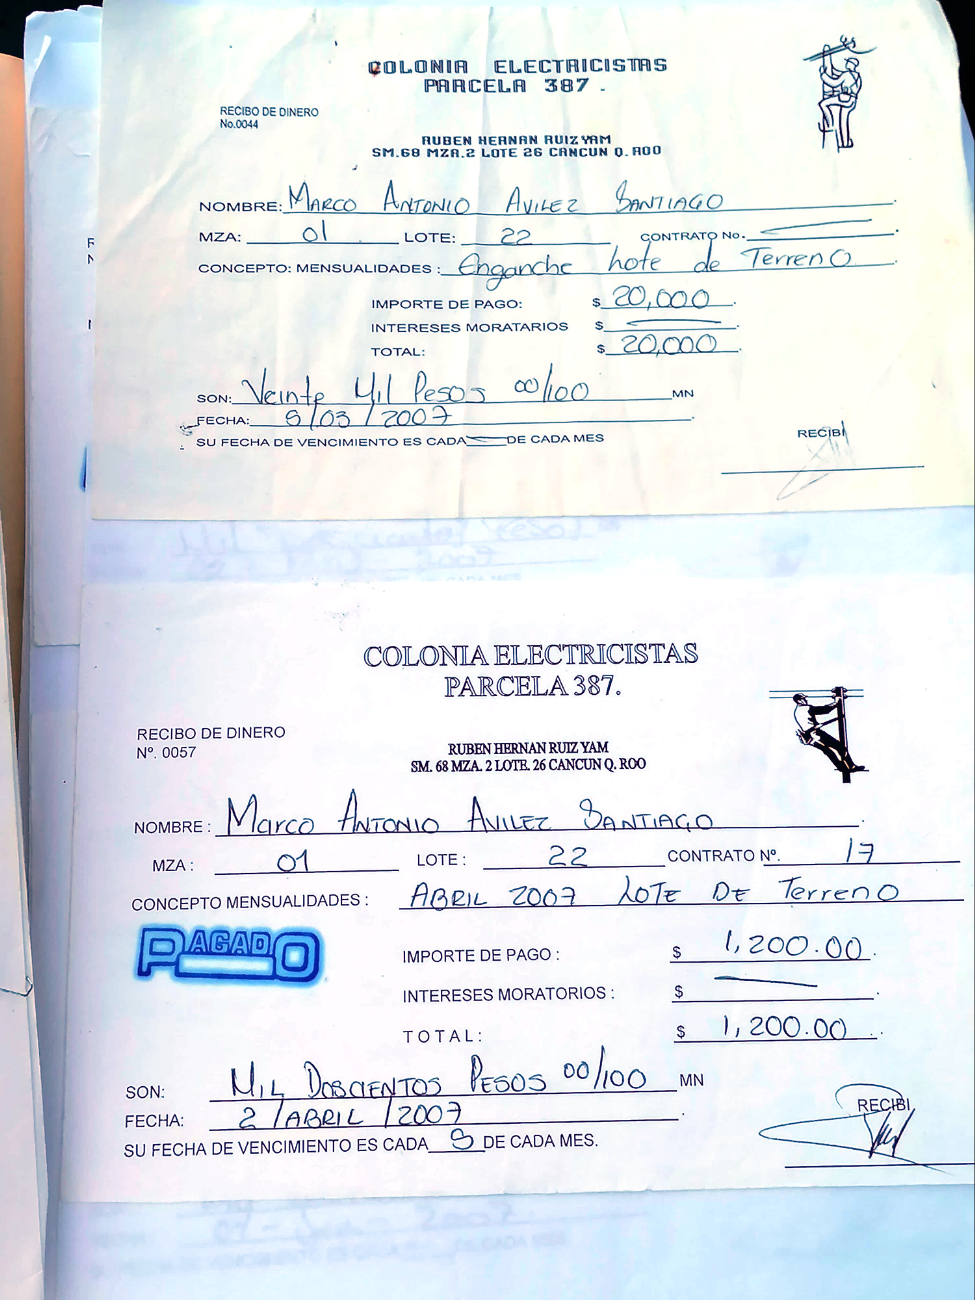 COLONIA ELECTRICISTAS
PARCELA 387.
RECIBO DE DINERO
No.0044
RUBEN HERNAN RUIZ YAM
SM.68 MZA.2 LOTE 26 CANCUN Q.ROO
NOMBRE: MARCO ANTONIO AVILEZ SANTIAGO
MZA: 01 LOTE: 22 CONTRATO No.
CONCEPTO: MENSUALIDADES : Enganche Lote de Terreno
IMPORTE DE PAGO: $ 20,000
INTERESES MORATARIOS $
TOTAL: $ 20,000
SON: Veinte Mil Pesos 00/100 MN
FECHA: 8/03/2007
SU FECHA DE VENCIMIENTO ES CADA DE CADA MES
RECIBI
COLONIA ELECTRICISTAS
PARCELA 387.
RECIBO DE DINERO
Nº. 0057
RUBEN HERNAN RUIZ YAM
SM. 68 MZA. 2 LOTE. 26 CANCUN Q. ROO
NOMBRE : Marco ANTONIO AVILEZ SANTIAGO
MZA : 01 LOTE : 22 CONTRATO Nº. 17
CONCEPTO MENSUALIDADES : ABRIL 2007 LOTE DE TerrenO
PAGADO
IMPORTE DE PAGO : $ 1,200.00
INTERESES MORATORIOS : $
TOTAL: $ 1,200.00
SON: MIL DOSCIENTOS PESOS 00/100 MN
FECHA: 2/ABRIL/2007
SU FECHA DE VENCIMIENTO ES CADA 8 DE CADA MES.
RECIBI